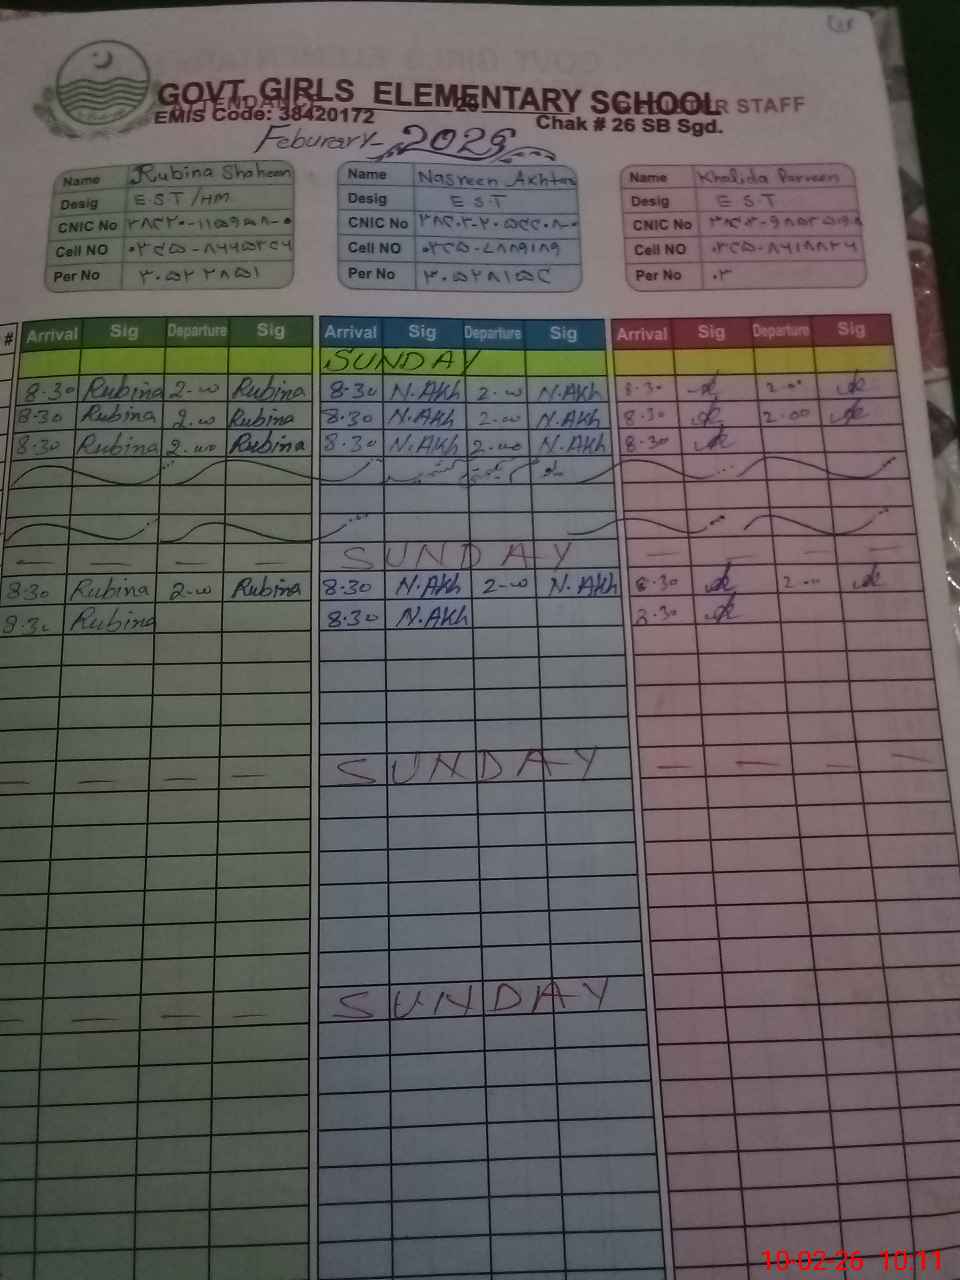 GOVT GIRLS ELEMENTARY SCHOOL
ATTENDANCE 20 STAFF
EMIS Code: 38420172 Chak # 26 SB Sgd.
Feburary- 2026
Name Rubina Shaheen Name Nasreen Akhtar Name Khalida Parveen
Desig E.S.T/HM Desig E S.T Desig E S.T
CNIC No CNIC No CNIC No
Cell NO Cell NO Cell NO
Per No ۳۰۵۲۲۸۵۱ Per No Per No ۰۳
# Arrival Sig Departure Sig Arrival Sig Departure Sig Arrival Sig Departure Sig
SUNDAY
8.30 Rubina 2-00 Rubina 8.30 N.AKh 2-00 N.AKh 8.30 2.00
8.30 Rubina 2-00 Rubina 8.30 N.AKh 2-00 N.AKh 8.30 2.00
8.30 Rubina 2-00 Rubina 8.30 N.AKh 2-00 N.AKh 8.30
SUNDAY
8.30 Rubina 2-00 Rubina 8.30 N.AKh 2-00 N.AKh 8.30 2.00
8.30 Rubina 8.30 N.AKh 8.30
SUNDAY
SUNDAY
10-02-26 10:11